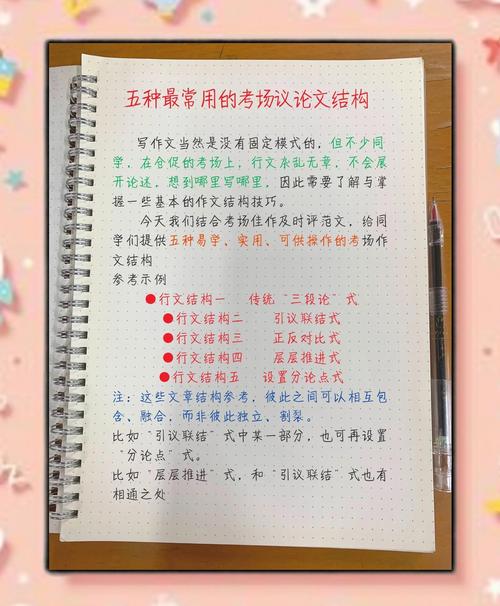 五种最常用的考场议论文结构
写作文当然是没有固定模式的，但不少同
学，在仓促的考场上，行文杂乱无章，不会展
开论述，想到哪里写哪里，因此需要了解与掌
握一些基本的作文结构技巧。
今天我们结合考场佳作及时评范文，给同
学们提供五种易学、实用、可供操作的考场作
文结构
参考示例
●行文结构一 传统“三段论”式
●行文结构二 引议联结式
●行文结构三 正反对比式
●行文结构四 层层推进式
●行文结构五 设置分论点式
注：这些文章结构参考，彼此之间可以相互包
含、融合，而非彼此独立、割裂。
比如“引议联结”式中某一部分，也可再设置
“分论点”式。
比如“层层推进”式，和“引议联结”式也有
相通之处